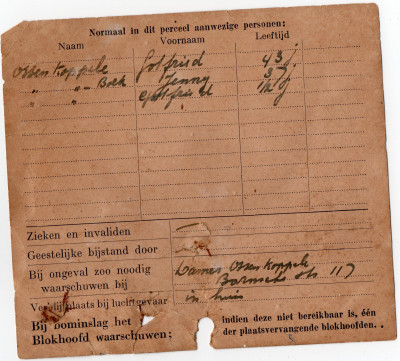 Normaal in dit perceel aanwezige personen:
Naam Voornaam Leeftijd
Ossenkoppele Gotfried 43 j.
" " - Boek Jenny 37 j
" " Gotfried 1½ j
Zieken en invaliden
Geestelijke bijstand door
Bij ongeval zoo noodig
waarschuwen bij
Dames Ossenkoppele
117
Verblijfplaats bij luchtgevaar in huis
Bij bominslag het
Blokhoofd waarschuwen;
indien deze niet bereikbaar is, één
der plaatsvervangende blokhoofden.